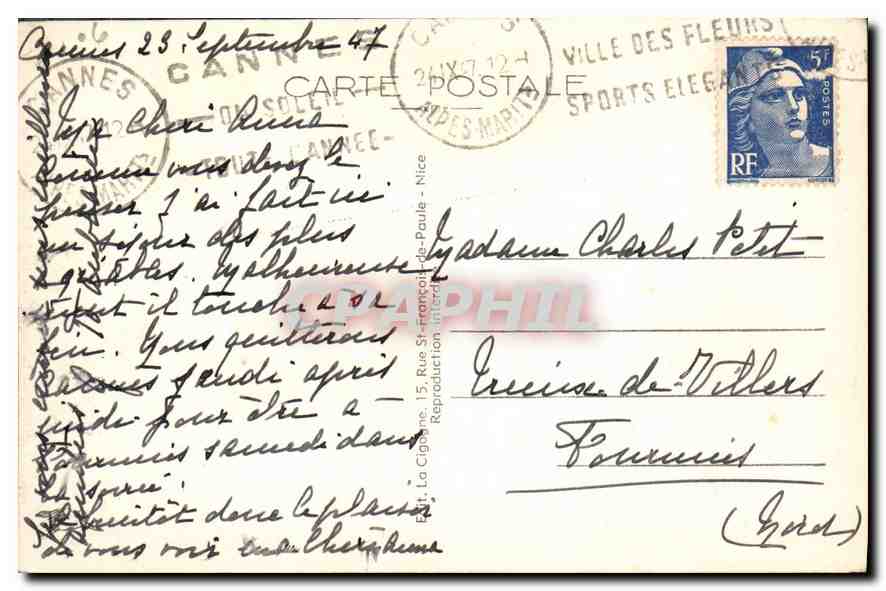 Cannes 23 Septembre 47
CANNES
CANNES
DU SOLEIL
TOUTE L'ANNEE
ALPES-MARIT
24 IX 47 12-
ALPES-MARIT
VILLE DES FLEURS
SPORTS ELEGANTS
CARTE POSTALE
5F
POSTES
RF
Ma Cheri Anna
Comme vous devez le
penser j'ai fait ici
un séjour des plus
agréables. Malheureuse
ment il touche a sa
fin. Nous quitterons
Cannes jeudi après
midi pour être a
Fourmies samedi dans
la soirée.
A bientôt donc le plaisir
de vous voir ma Chère Anna
Madame Charles Petit
de Villers
Fourmies
(Nord)
Edit. La Cigogne. 15, Rue St-François-de-Paule - Nice
Reproduction interdite
CPAPHIL